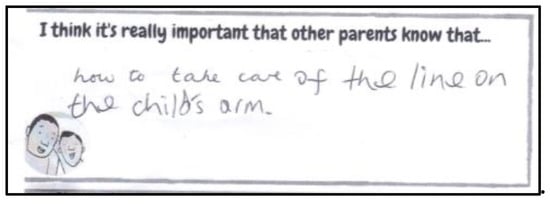 I think it's really important that other parents know that...
how to take care of the line on
the child's arm.